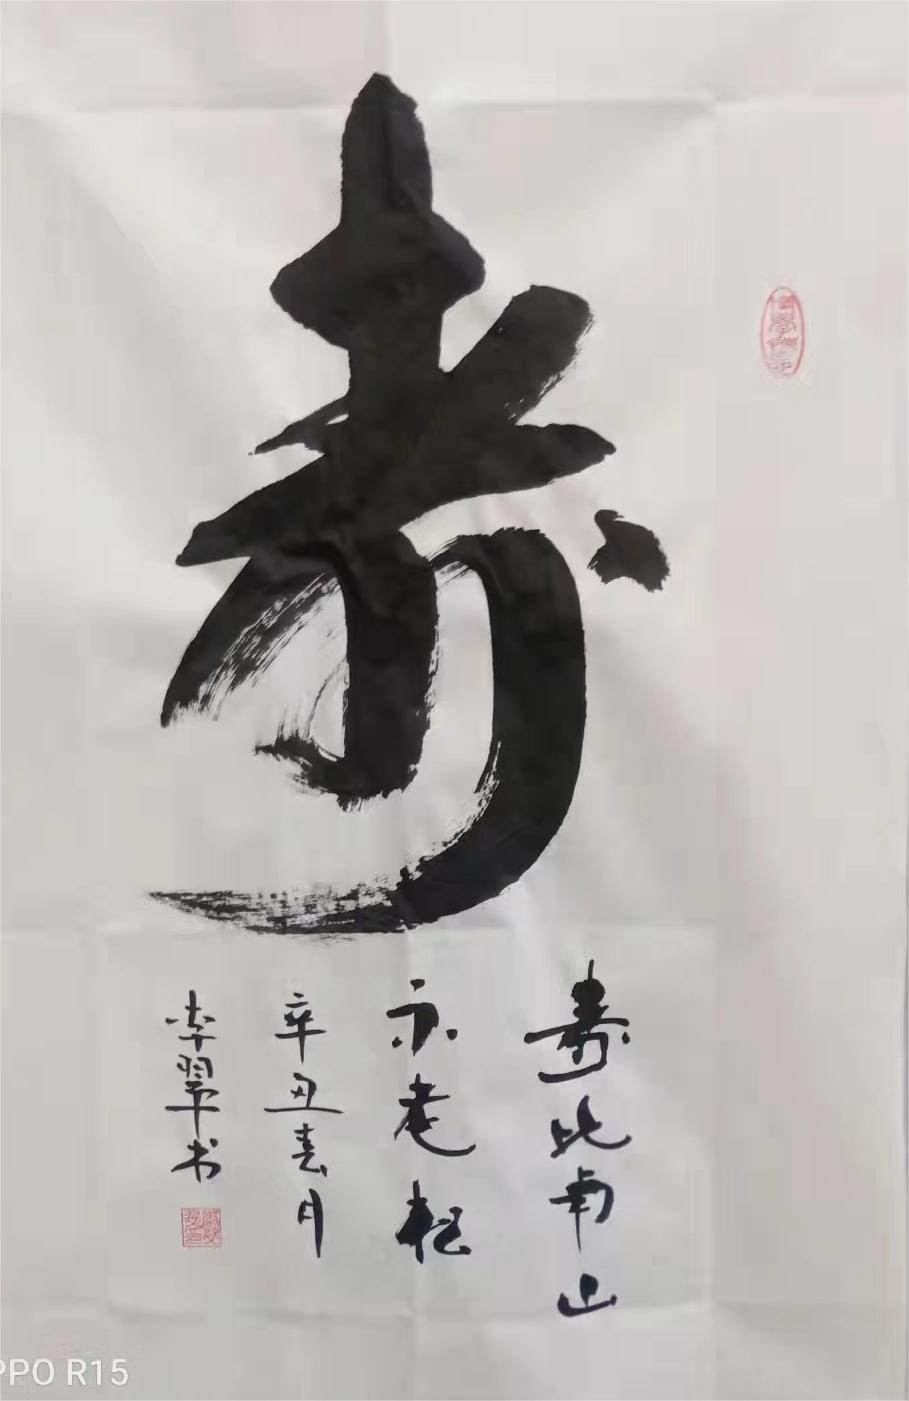 寿
寿比南山
不老松
辛丑春月
李翠书
PPO R15